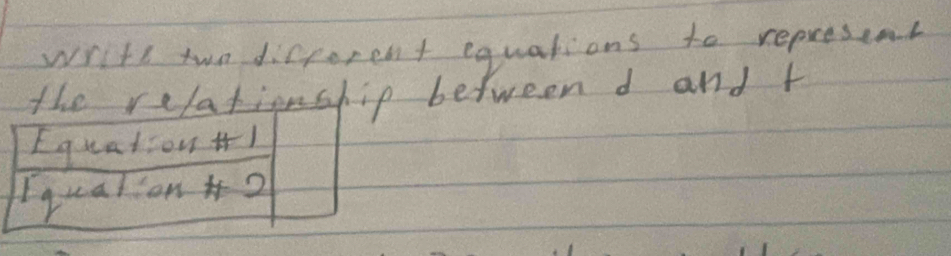 write two different equations to represent
the relationship between d and t
Equation #1
Equation #2